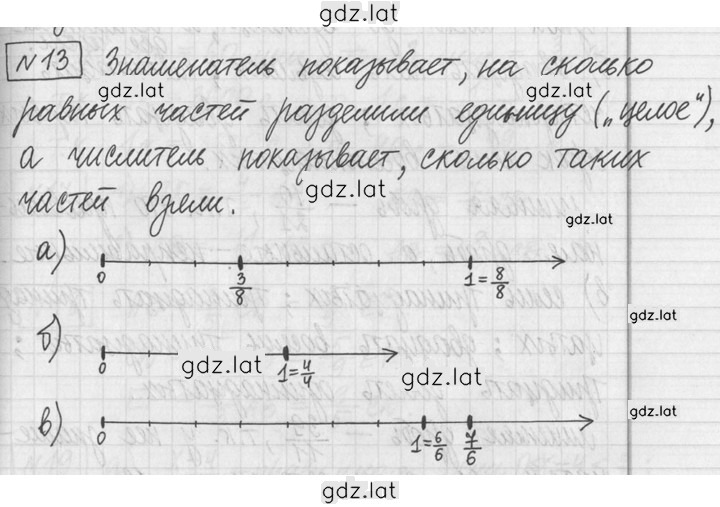 gdz.lat
№13 Знаменатель показывает, на сколько
gdz.lat gdz.lat
равных частей разделили единицу („целое“),
а числитель показывает, сколько таких
gdz.lat
частей взяли.
gdz.lat
а) 0 3/8 1=8/8
gdz.lat
б) 0 gdz.lat 1=4/4 gdz.lat
gdz.lat
в) 0 1=6/6 7/6
gdz.lat